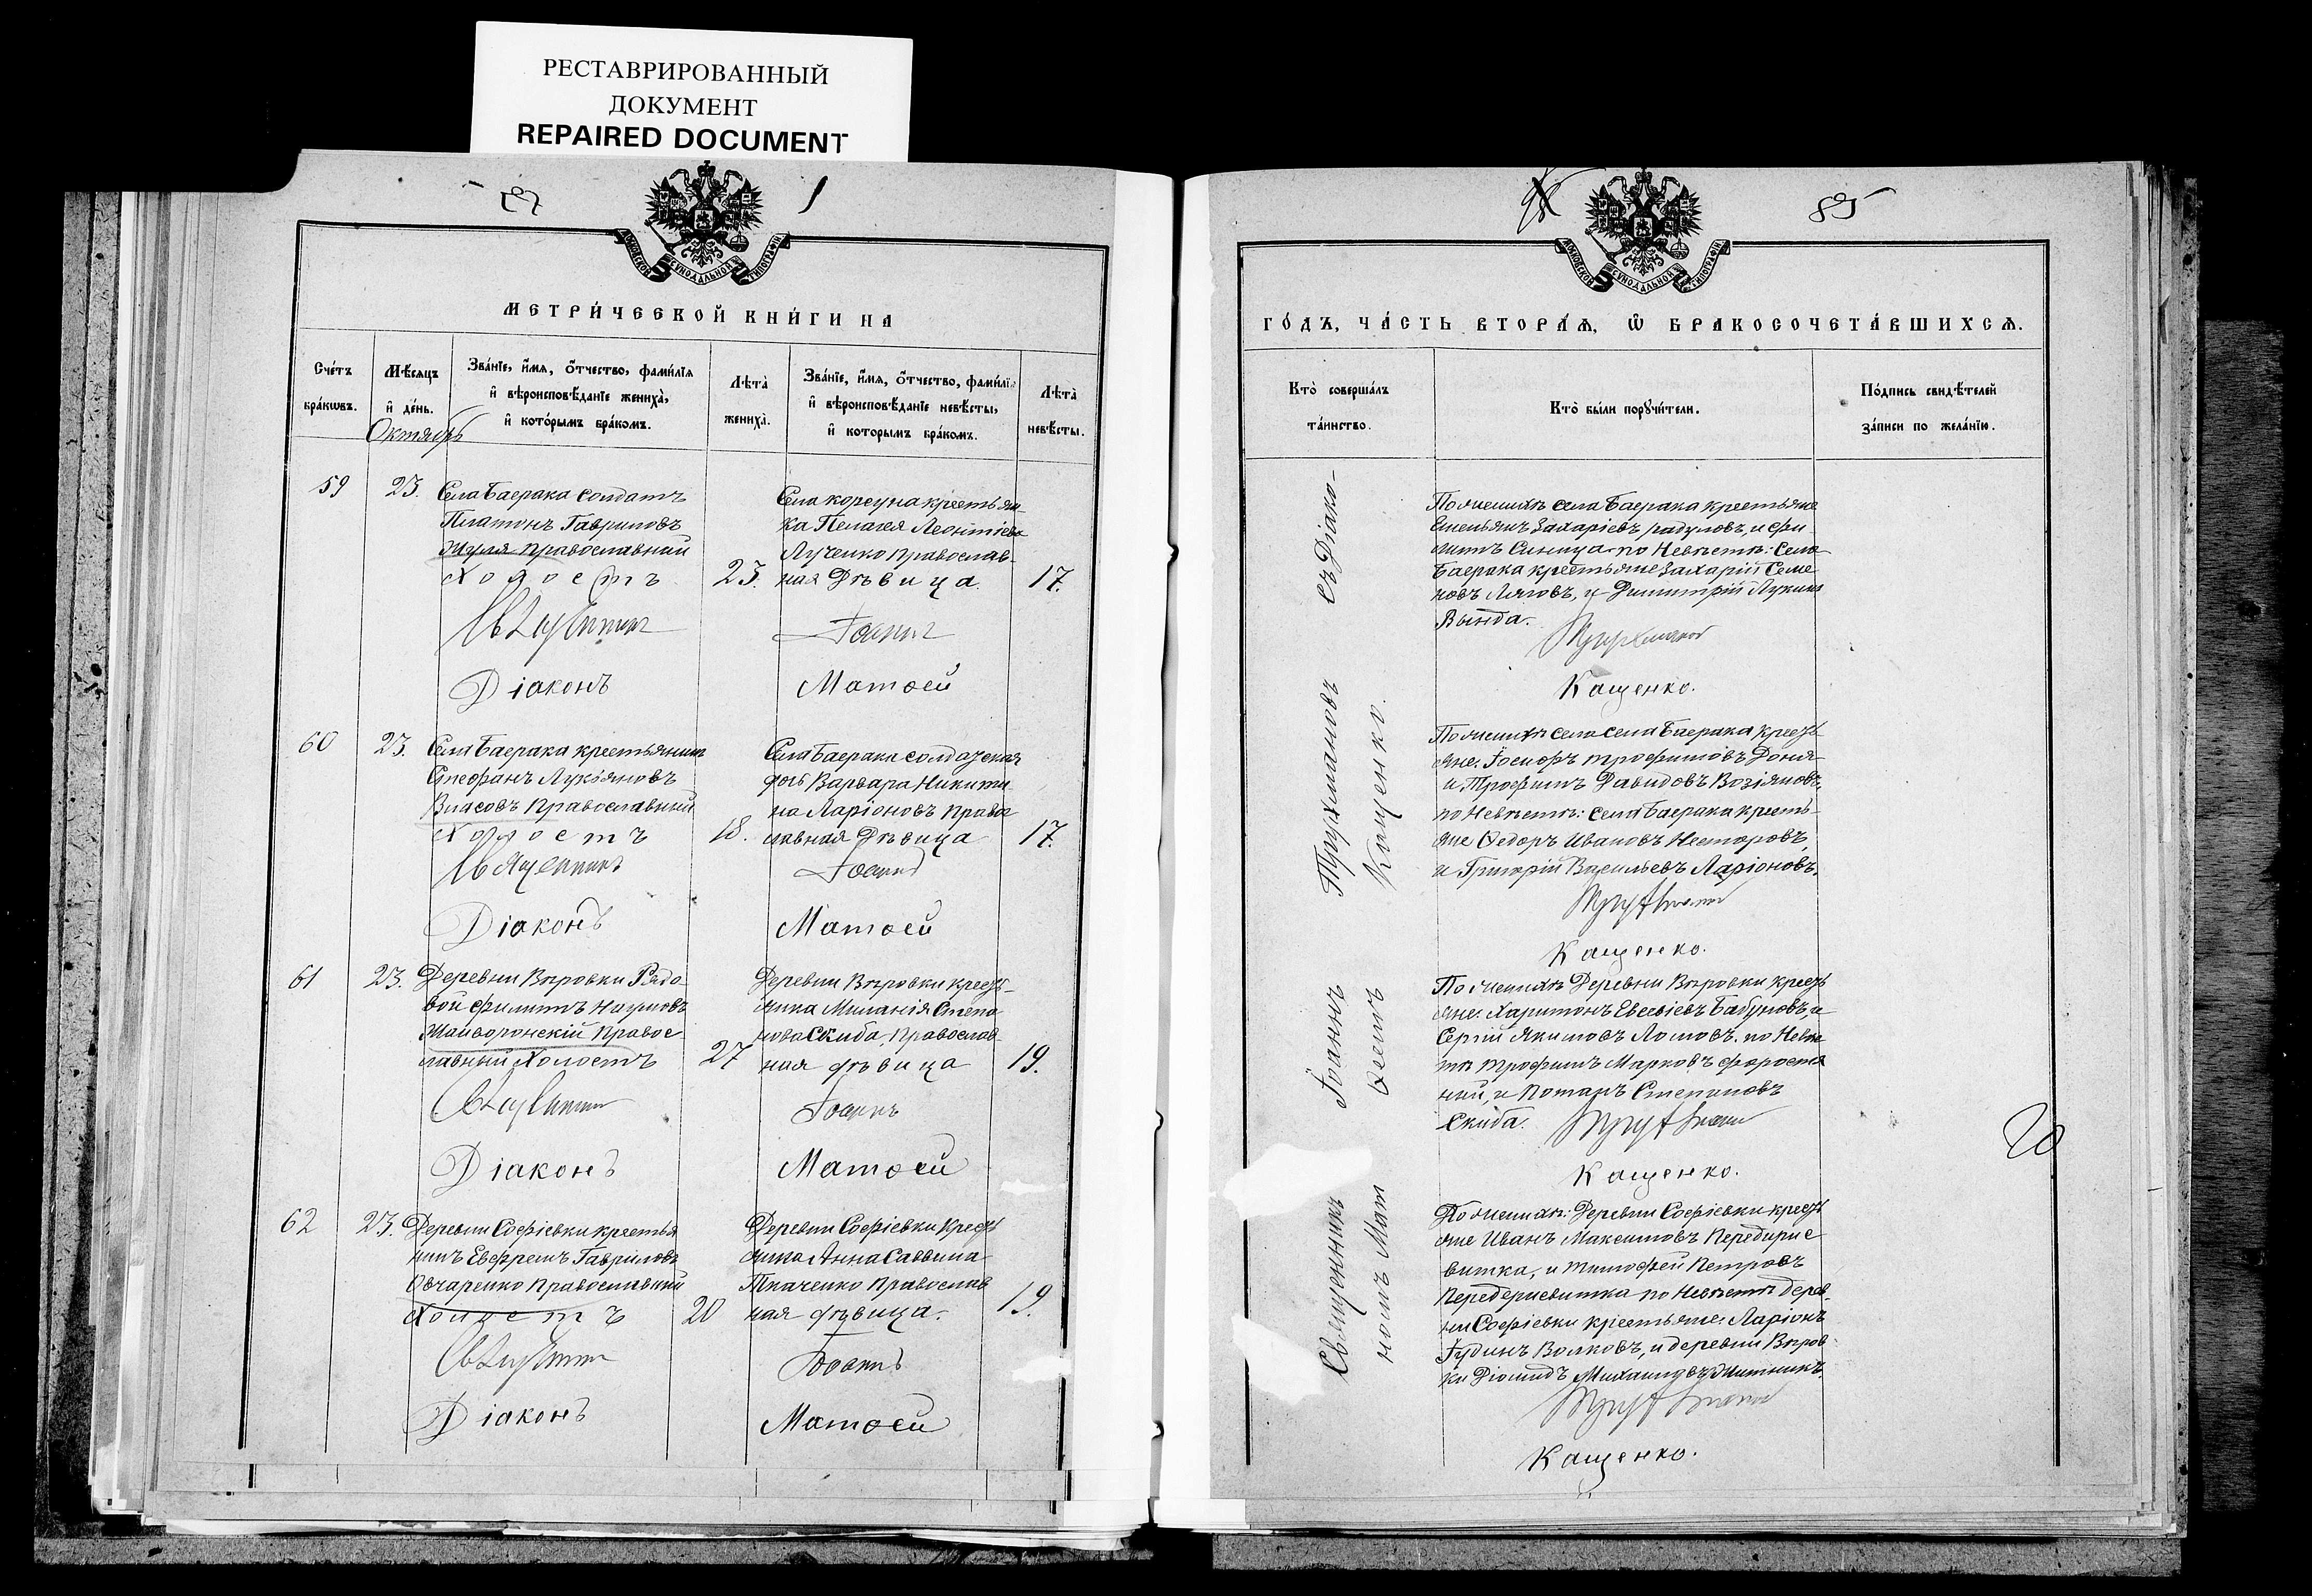 РЕСТАВРИРОВАННЫЙ
ДОКУМЕНТ
REPAIRED DOCUMENT
МОСКОВСКОЙ СѴНОДАЛЬНОЙ ТИПОГРАФІИ
МЕТРИ́ЧЕСКОЙ КНИ́ГИ НА
Сче́тъ
бра́кωвъ.
Мѣ́сяцъ
и҆ де́нь.
Октябрь
Зва́нїе, и҆́мя, о҆́тчество, фами́лїя
и҆ вѣроисповѣ́данїе жениха̀,
и҆ кото́рымъ бра́комъ.
Лѣта̀
жениха̀.
Зва́нїе, и҆́мя, о҆́тчество, фами́лїя
и҆ вѣроисповѣ́данїе невѣ́сты,
и҆ которымъ бра́комъ.
Лѣта̀
невѣ́сты.
59
23.
Села Баерака солдатъ
Платонъ Гавриловъ
Жуля православный
Холостъ
23.
Села Корсуна крестьян-
ка Пелагея Леонтіева
Лученко православ-
ная Дѣвица
17.
Священникъ
Іоаннъ
Діаконъ
Матѳей
60
23.
Села Баерака крестьянинъ
Стефанъ Лукьяновъ
Власовъ православный
Холостъ
18.
Села Баерака солдатская
дочь Варвара Никити
на Ларіоновъ право
славная Дѣвица
17.
Священникъ
Іоаннъ
Діаконъ
Матѳей
61
23.
Деревни Вѣровки Рядо
вой Филиппъ Наумовъ
Жайворонскій Правос
лавный Холостъ
27
Деревни Вѣровки кресть-
янка Миланія Степа
нова Скиба, Православ
ная дѣвица
19.
Священникъ
Іоаннъ
Діаконъ
Матѳей
62
23.
Деревни Софіевки крестья
нинъ Евфремъ Гавриловъ
Овчаренко Православный
Холостъ
20
Деревни Софіевки кресть
янка Анна Саввина
Ткаченко Православ
ная дѣвица.
19.
Священникъ
Іоаннъ
Діаконъ
Матѳей
85
МОСКОВСКОЙ СѴНОДАЛЬНОЙ ТИПОГРАФІИ
ГО́ДЪ, ЧА́СТЬ ВТОРА́Ѧ, Ѽ БРАКОСОЧЕТА́ВШИХСѦ.
Кто̀ соверша́лъ
та́инство.
Кто̀ бы́ли порꙋчи́тели.
По́дпись свидѣ́телей
за́писи по жела́нїю.
Священникъ Іоаннъ Трухмановъ съ Діако-
номъ Матѳеемъ Кащенко.
По женихѣ села Баерака крестьяне
Емельянъ Захаріевъ Радуловъ, и Фи
липпъ Синица по Невѣстѣ: Села
Баерака крестьяне Захарій Семе
новъ Ляговъ, и Димитрій Лукинъ
Вында.
Трухмановъ
Кащенко.
По женихѣ села села Баерака кресть
яне. Іосифъ Трофимовъ Доня
и Трофимъ Давидовъ Возіяновъ,
по Невѣстѣ: села Баерака кресть-
яне Ѳедоръ Ивановъ Нестеровъ,
и Григорій Васильевъ Ларіоновъ.
Трухмановъ
Кащенко.
По женихѣ Деревни Вѣровки кресть
яне. Харитонъ Евсѣіевъ Бабуновъ, и
Сергій Якимовъ Ломовъ. по Невѣс
тѣ Трофимъ Марковъ Фарости
ный, и Потапъ Степановъ
Скиба.
Трухмановъ
Кащенко.
20
По женихѣ: Деревни Софіевки кресть
яне Иванъ Максимовъ Передирие
витка, и Тимофей Петровъ
Передериевитка по Невѣстѣ дерев-
ни Софіевки крестьяне: Ларіонъ
Іудинъ Волковъ, и деревни Вѣров
ки Діомидъ Михаиловъ Житникъ.
Трухмановъ
Кащенко.